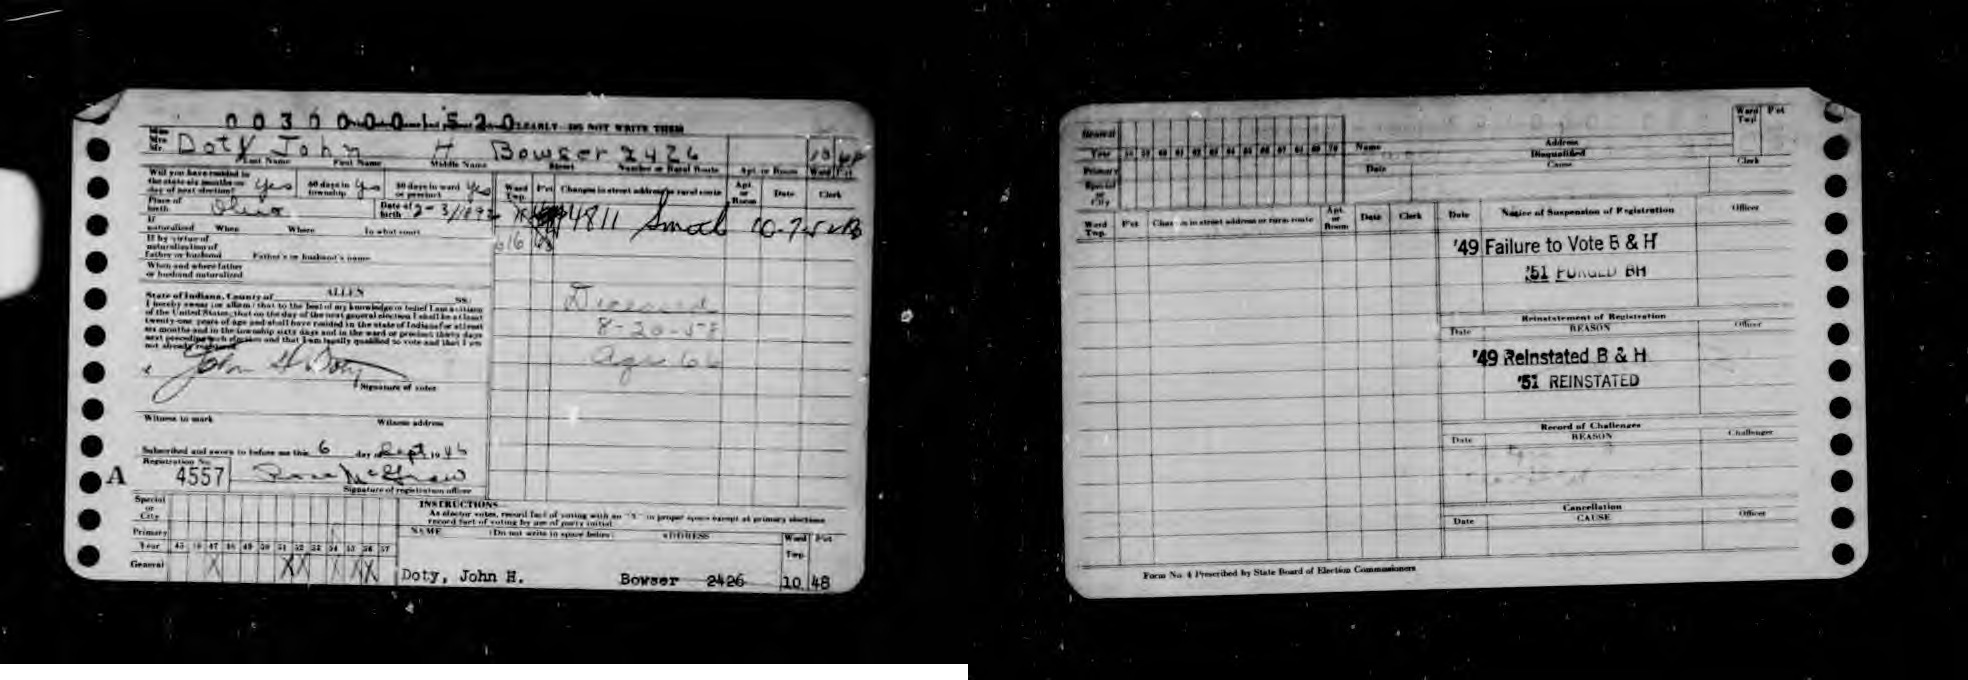 00300001520
CLEARLY - DO NOT WRITE THEM
Miss
Mrs.
Mr.
Doty John H Bowser 2426 10 48
Last Name First Name Middle Name Street Number or Rural Route Apt. or Room Ward Pct
Will you have resided in
the state six months on
day of next election? Yes
60 days in
township? Yes
30 days in ward
or precinct Yes
Ward
Twp.
Pct
Changes in street address or rural route
Apt.
or
Room
Date
Clerk
Place of
birth Ohio
Date of
birth
4811 Smith
If
naturalized When Where In what court
If by virtue of
naturalization of
Father or husband Father's or husband's name
When and where father
or husband naturalized
State of Indiana, County of ALLEN SS:
I hereby swear (or affirm) that to the best of my knowledge or belief I am a citizen
of the United States; that on the day of the next general election I shall be at least
twenty-one years of age and shall have resided in the state of Indiana for at least
six months and in the township sixty days and in the ward or precinct thirty days
next preceding such election and that I am legally qualified to vote and that I am
not already registered.
Deceased
8-20-58
Age 66
John H Doty
Signature of voter
Witness to mark Witness address
Subscribed and sworn to before me this 6 day of Sept 1946
Registration No.
A 4557
Signature of registration officer
Special
or
City
Primary
Year 45 46 47 48 49 50 51 52 53 54 55 56 57
General X X X X X X
INSTRUCTIONS
As elector votes, record fact of voting with an "X" in proper space except at primary elections
record fact of voting by use of party initial
NAME (Do not write in space below) ADDRESS Ward
Twp. Pct
Doty, John H. Bowser 2426 10 48
General
Year 58 59 60 61 62 63 64 65 66 67 68 69 70
Primary
Special
or
City
Name Address
Ward
Twp. Pct
Disqualified
Date Cause Clerk
Ward
Twp.
Pct
Changes in street address or rural route
Apt.
or
Room
Date Clerk
Date Notice of Suspension of Registration Officer
'49 Failure to Vote B & H
'51 PURGED BH
Reinstatement of Registration
Date REASON Officer
'49 Reinstated B & H
'51 REINSTATED
Record of Challenges
Date REASON Challenger
Cancellation
Date CAUSE Officer
Form No. 4 Prescribed by State Board of Election Commissioners